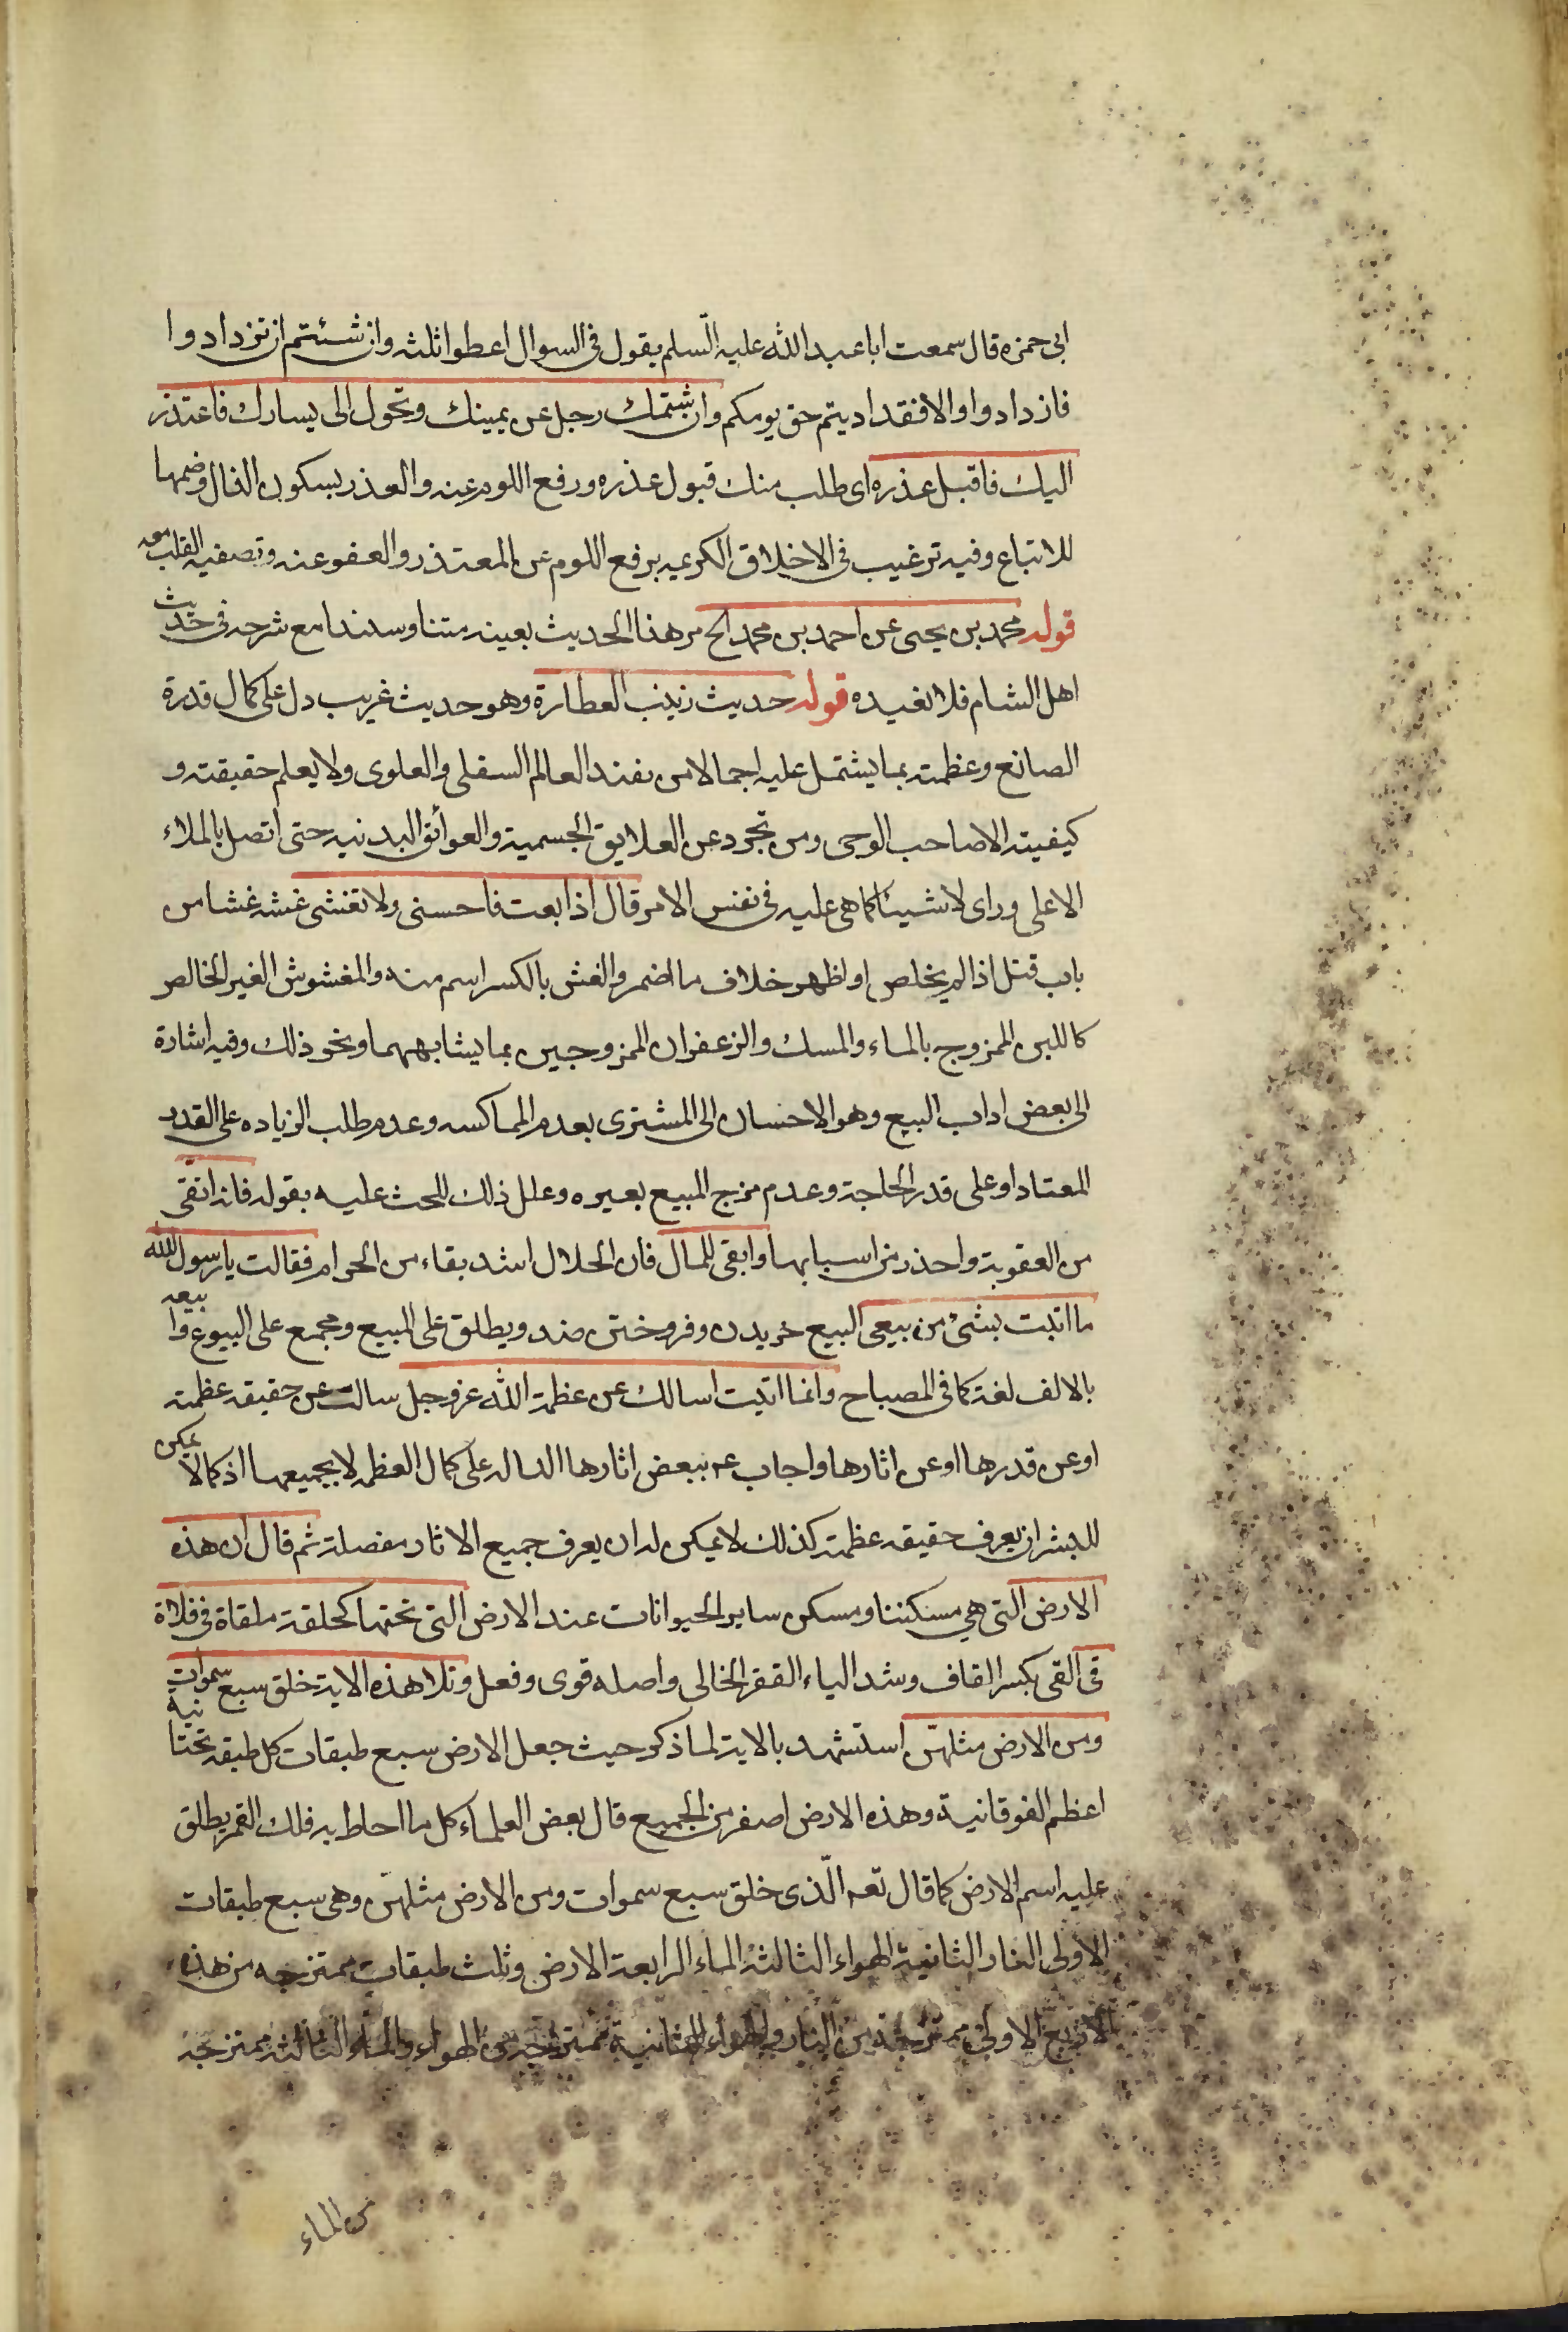 ابى حمزه قال سمعت ابا عبد الله عليه السّلم يقول فى السوال اعطوا ثلثه وان شئتم ان تزدادوا
فازدادوا والا فقد اديتم حق يومكم وان شتمك رجل عن يمينك وتحول الى يسارك فاعتذر
اليك فاقبل عذره اى طلب منك قبول عذره ورفع اللوم عنه والعذر بسكون الذال وضمها
للاتباع وفيه ترغيب فى الاخلاق الكريمه برفع اللوم عن المعتذر والعفو عنه وتصفيه القلب معه
قوله محمد بن يحيى عن احمد بن محمد الخ مر هذا الحديث بعينه متنا وسندا مع شرحه فى حديث
اهل الشام فلا نعيده قوله حديث زينب العطارة وهو حديث غريب دل على كمال قدرة
الصانع وعظمته بما يشتمل عليه اجمالا من العالم السفلى والعلوى ولا يعلم حقيقته و
كيفيته الا صاحب الوحى ومن تجرد عن العلايق الجسمية والعوائق البدنيه حتى اتصل بالملاء
الاعلى وراى الاشياء كما هى عليه فى نفس الامر قال اذا بعت فاحسنى ولا تغشى غشه غشا من
باب قتل اذا لم يخلص او اظهر خلاف ما اضمر والغش بالكسر اسم منه والمغشوش الغير الخالص
كاللبن الممزوج بالماء والمسك والزعفران الممزوجين بما يشابههما ونحو ذلك وفيه اشارة
الى بعض اداب البيع وهو الاحسان الى المشترى بعدم المماكسه وعدم طلب الزياده على القدر
المعتاد او على قدر الحاجة وعدم مزج المبيع بعيره وعلل ذلك للحث عليه بقوله فانه اتقى
من العقوبة واحذر من اسبابها وابقى للمال فان الحلال اشد بقاء من الحرام فقالت يا رسول الله
ما اتيت بشئ من بيعى البيع خريدن وفروختن ضد ويطلق على المبيع ويجمع على البيوع وابيعه
بالالف لغة كما فى المصباح وانما اتيت اسالك عن عظمة الله عز وجل سالت عن حقيقه عظمته
او عن قدرها او عن اثارها واجاب عم ببعض اثارها الداله على كمال العظمه لا بجميعها اذ كما لا يمكن
للبشر ان يعرف حقيقه عظمته كذلك لا يمكن له ان يعرف جميع الاثار مفصلة ثم قال ان هذه
الارض التى هى مسكننا ومسكن ساير الحيوانات عند الارض التى تحتها كحلقة ملقاة فى فلاة
قى القى بكسر القاف وشد الياء القفر الخالى واصله قوى وفعل وتلا هذه الاية خلق سبع سموات
ومن الارض مثلهنّ استشهد بالاية لما ذكر حيث جعل الارض سبع طبقات كل طبقه تحتانية
اعظم الفوقانية وهذه الارض اصغر من الجميع قال بعض العلماء كل ما احاط به فلك القمر يطلق
عليه اسم الارض كما قال تعه الّذى خلق سبع سموات ومن الارض مثلهنّ وهى سبع طبقات
الاولى النار الثانية الهواء الثالثة الماء الرابعة الارض وثلث طبقات ممتزجه من هذه
الاربع الاولى ممتزجة من النار والهواء الثانية ممتزجه من الهواء والماء الثالثه ممتزجه
من الماء